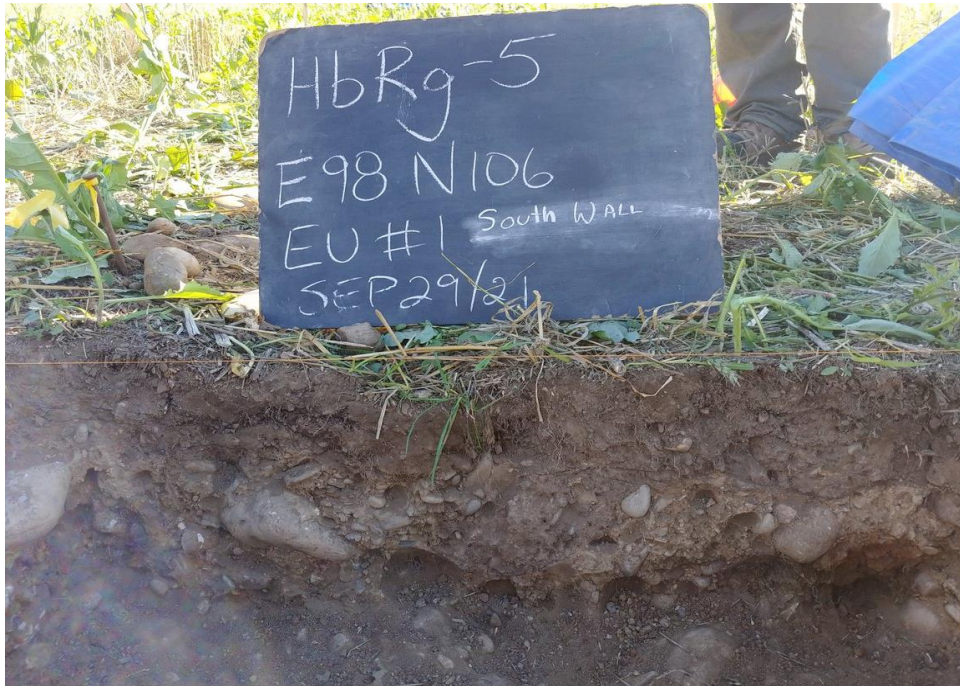 HbRg-5
E98 N106
EU #1 South WALL
SEP 29/21